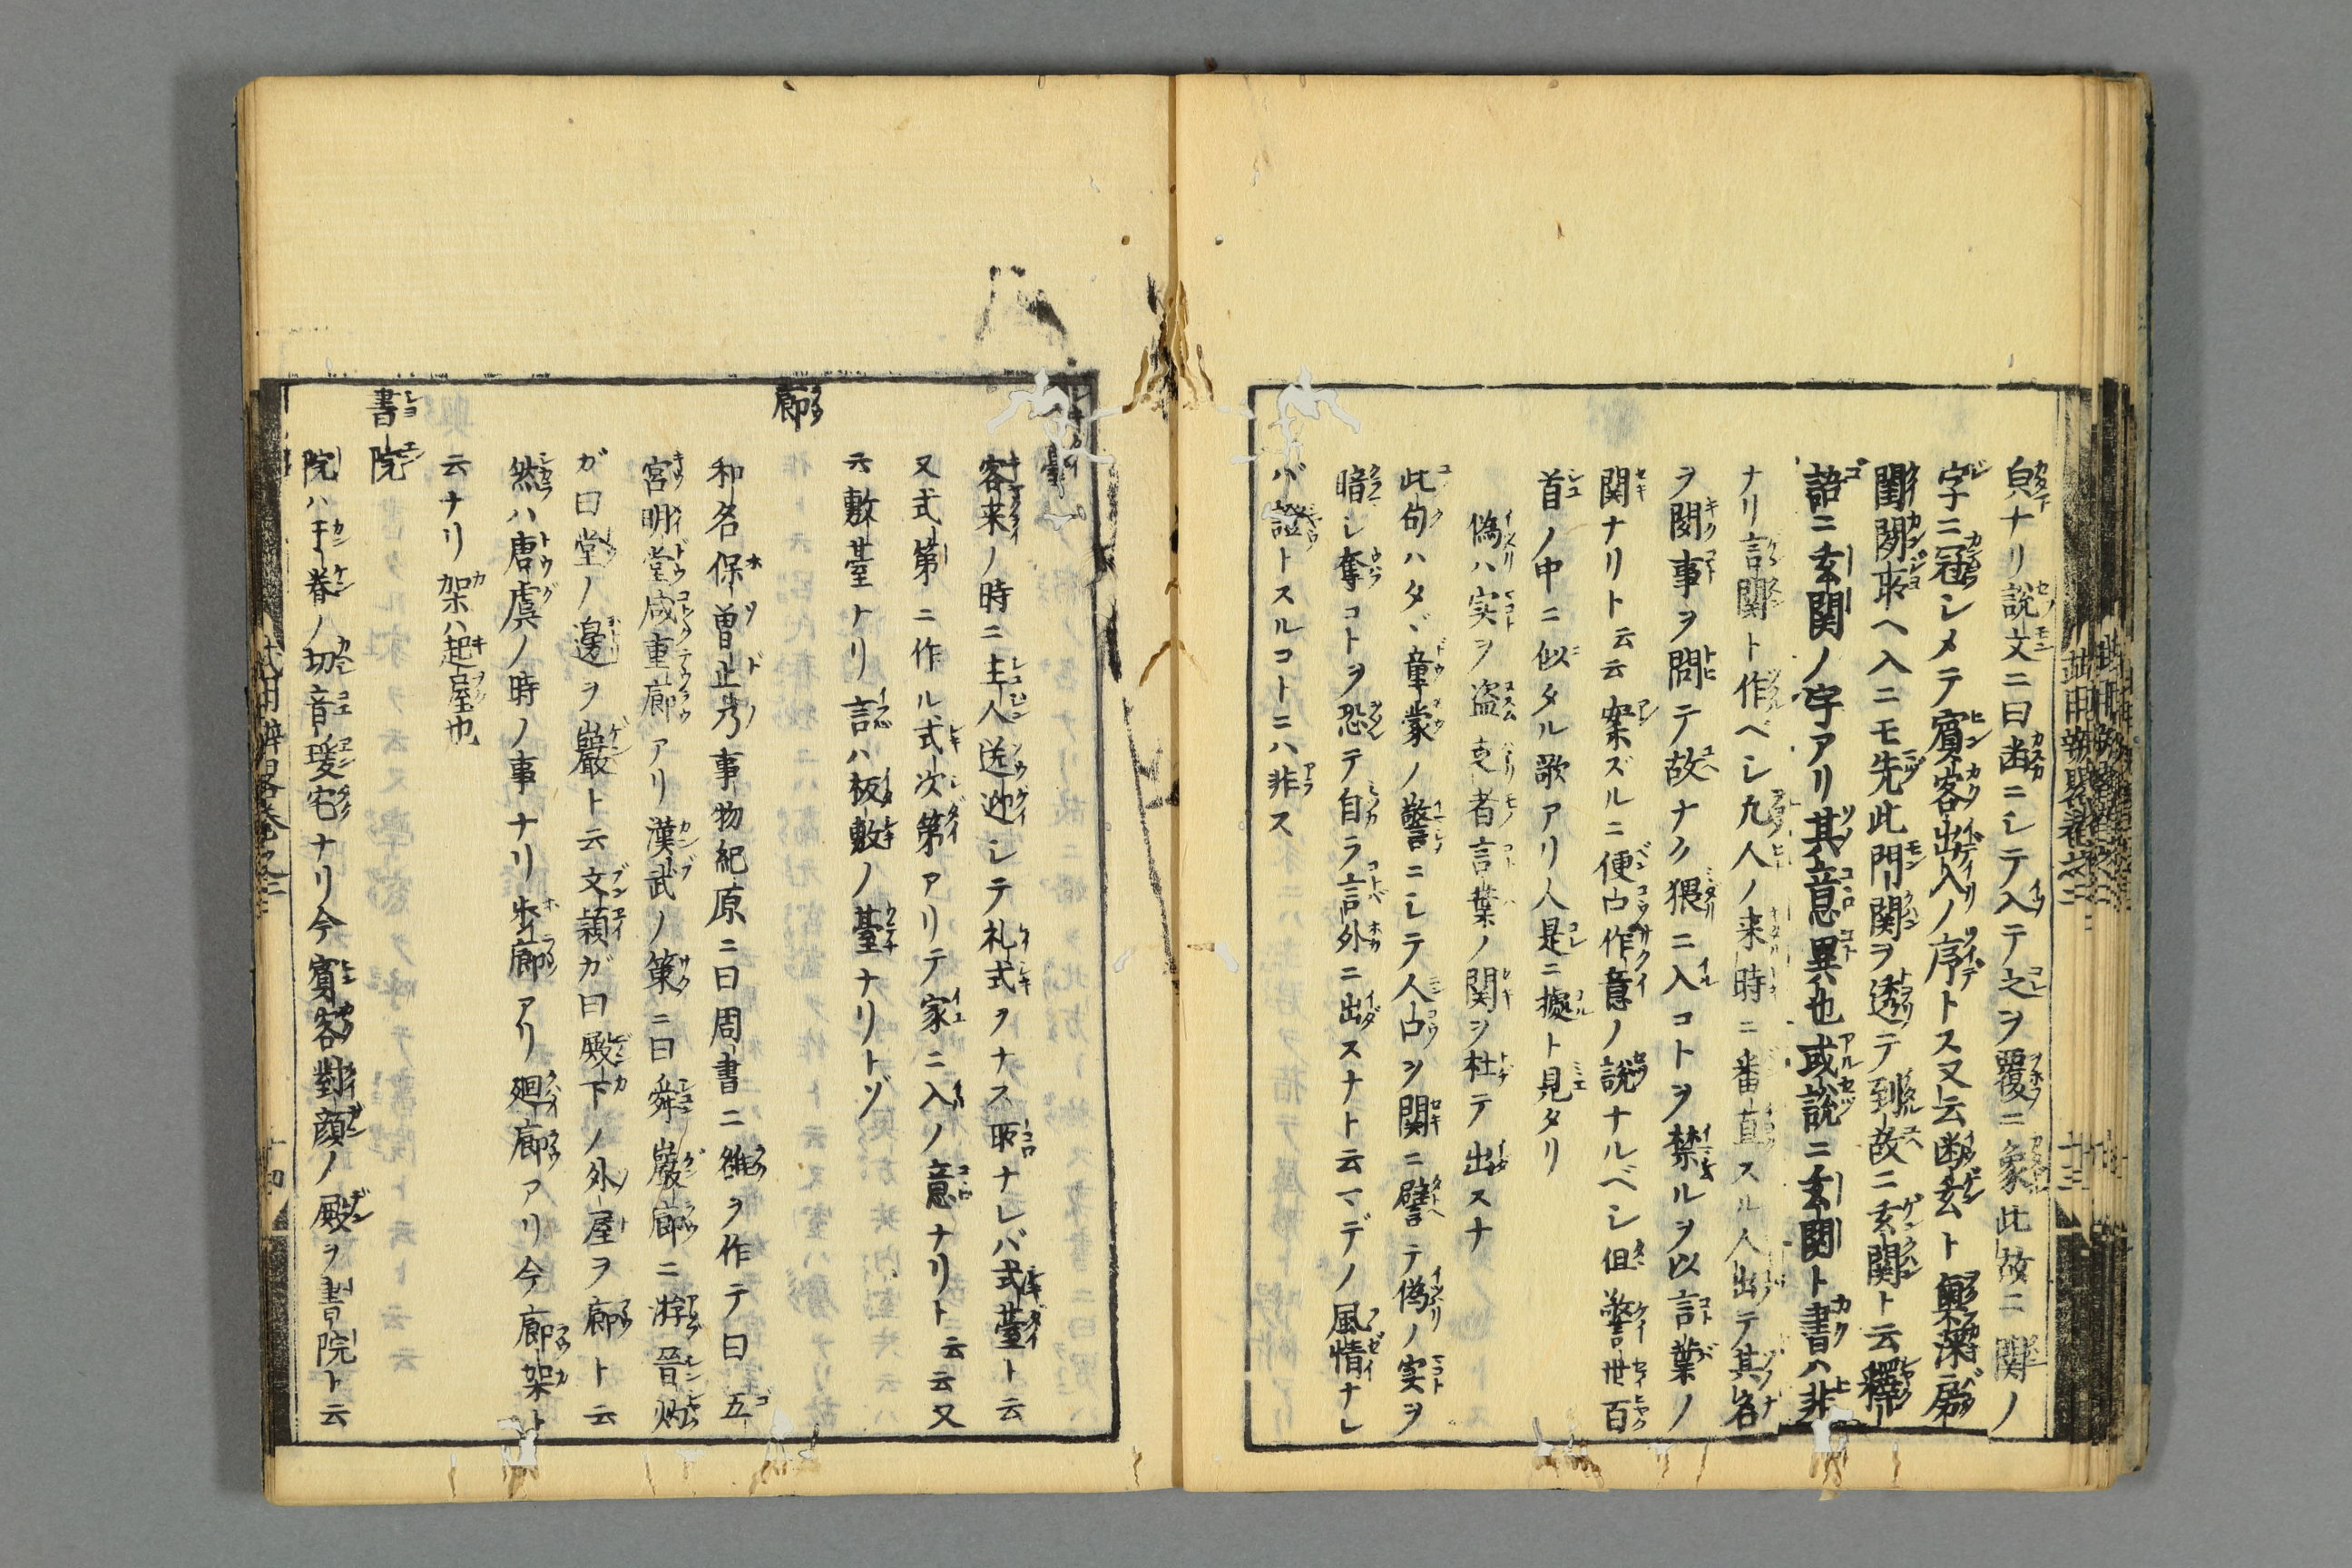 皃ナリ説文ニ曰幽ニシテ入テ之ヲ覆ニ象此故ニ関ノ
字ニ冠シメテ賓客出入ノ序トス又云幽玄ト奥深廓
閨閤取ヘ入ニモ先此門関ヲ透テ到故ニ玄関ト云釋
語ニ玄関ノ字アリ其意異也或説ニ玄関ト書ハ非
ナリ言関ト作ベシ凡人ノ来時ニ番直スル人出テ其名
ヲ聞事ヲ問テ故ナク猥ニ入コトヲ禁ルヲ以言葉ノ
関ナリト云云案ズルニ便占作意ノ説ナルベシ但警世百
首ノ中ニ似タル歌アリ人是ニ據ト見タリ
偽ハ実ヲ盗む者言葉ノ関ヲ杜テ出スナ
此句ハタヾ童蒙ノ警ニシテ人占ヲ関ニ譬テ偽ノ実ヲ
暗シ奪コトヲ恐テ自ラ言外ニ出スナト云マデノ風情ナレ
バ證トスルコトニハ非ス
臺
客来ノ時ニ主人送迎シテ礼式ヲナス所ナレバ式臺ト云
又式第ニ作ル式次第アリテ家ニ入ノ意ナリト云云又
云敷臺トリ言ハ板敷ノ臺ナリトゾ
廊
和名保曽止乃事物紀原ニ曰周書ニ維ヲ作テ曰五
宮明堂咸重廊アリ漢武ノ策ニ曰舜巖廊ニ游晉灼
ガ曰堂ノ邊ヲ巖ト云文穎ガ曰殿下ノ外屋ヲ廊ト云
然ハ唐虞ノ時ノ事ナリ歩廊アリ廻廊アリ今廊架ト
云ナリ架ハ起屋也
書院
院ハ于眷ノ切音瑗宅ナリ今賓客對顔ノ殿ヲ書院ト云